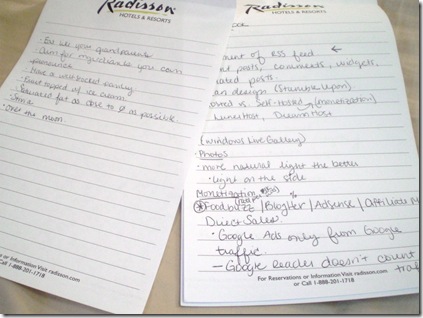 Radisson
HOTELS & RESORTS
your grandparents
Aim for ingredients you can
pronounce
Have a well stocked pantry
ice cream
Saturated fat as close to 0 as possible
Smile
• Over the moon
or Information Visit radisson.com
or Call 1-888-201-1718
Radisson
HOTELS & RESORTS
ount of RSS feed ←
posts, comments, widgets,
ated posts.
an design (StumbleUpon)
vs. Self-Hosted (monetization)
LunarHost, DreamHost
(Windows Live Gallery)
• Photos
• more natural light the better
• light on the side
Monetization
Foodbuzz / BlogHer / Adsense / Affiliate
Direct Sales.
• Google Ads only from Google
traffic.
– Google reader doesn't count
traf
For Reservations or Information Visit radisson.com
or Call 1-888-201-1718